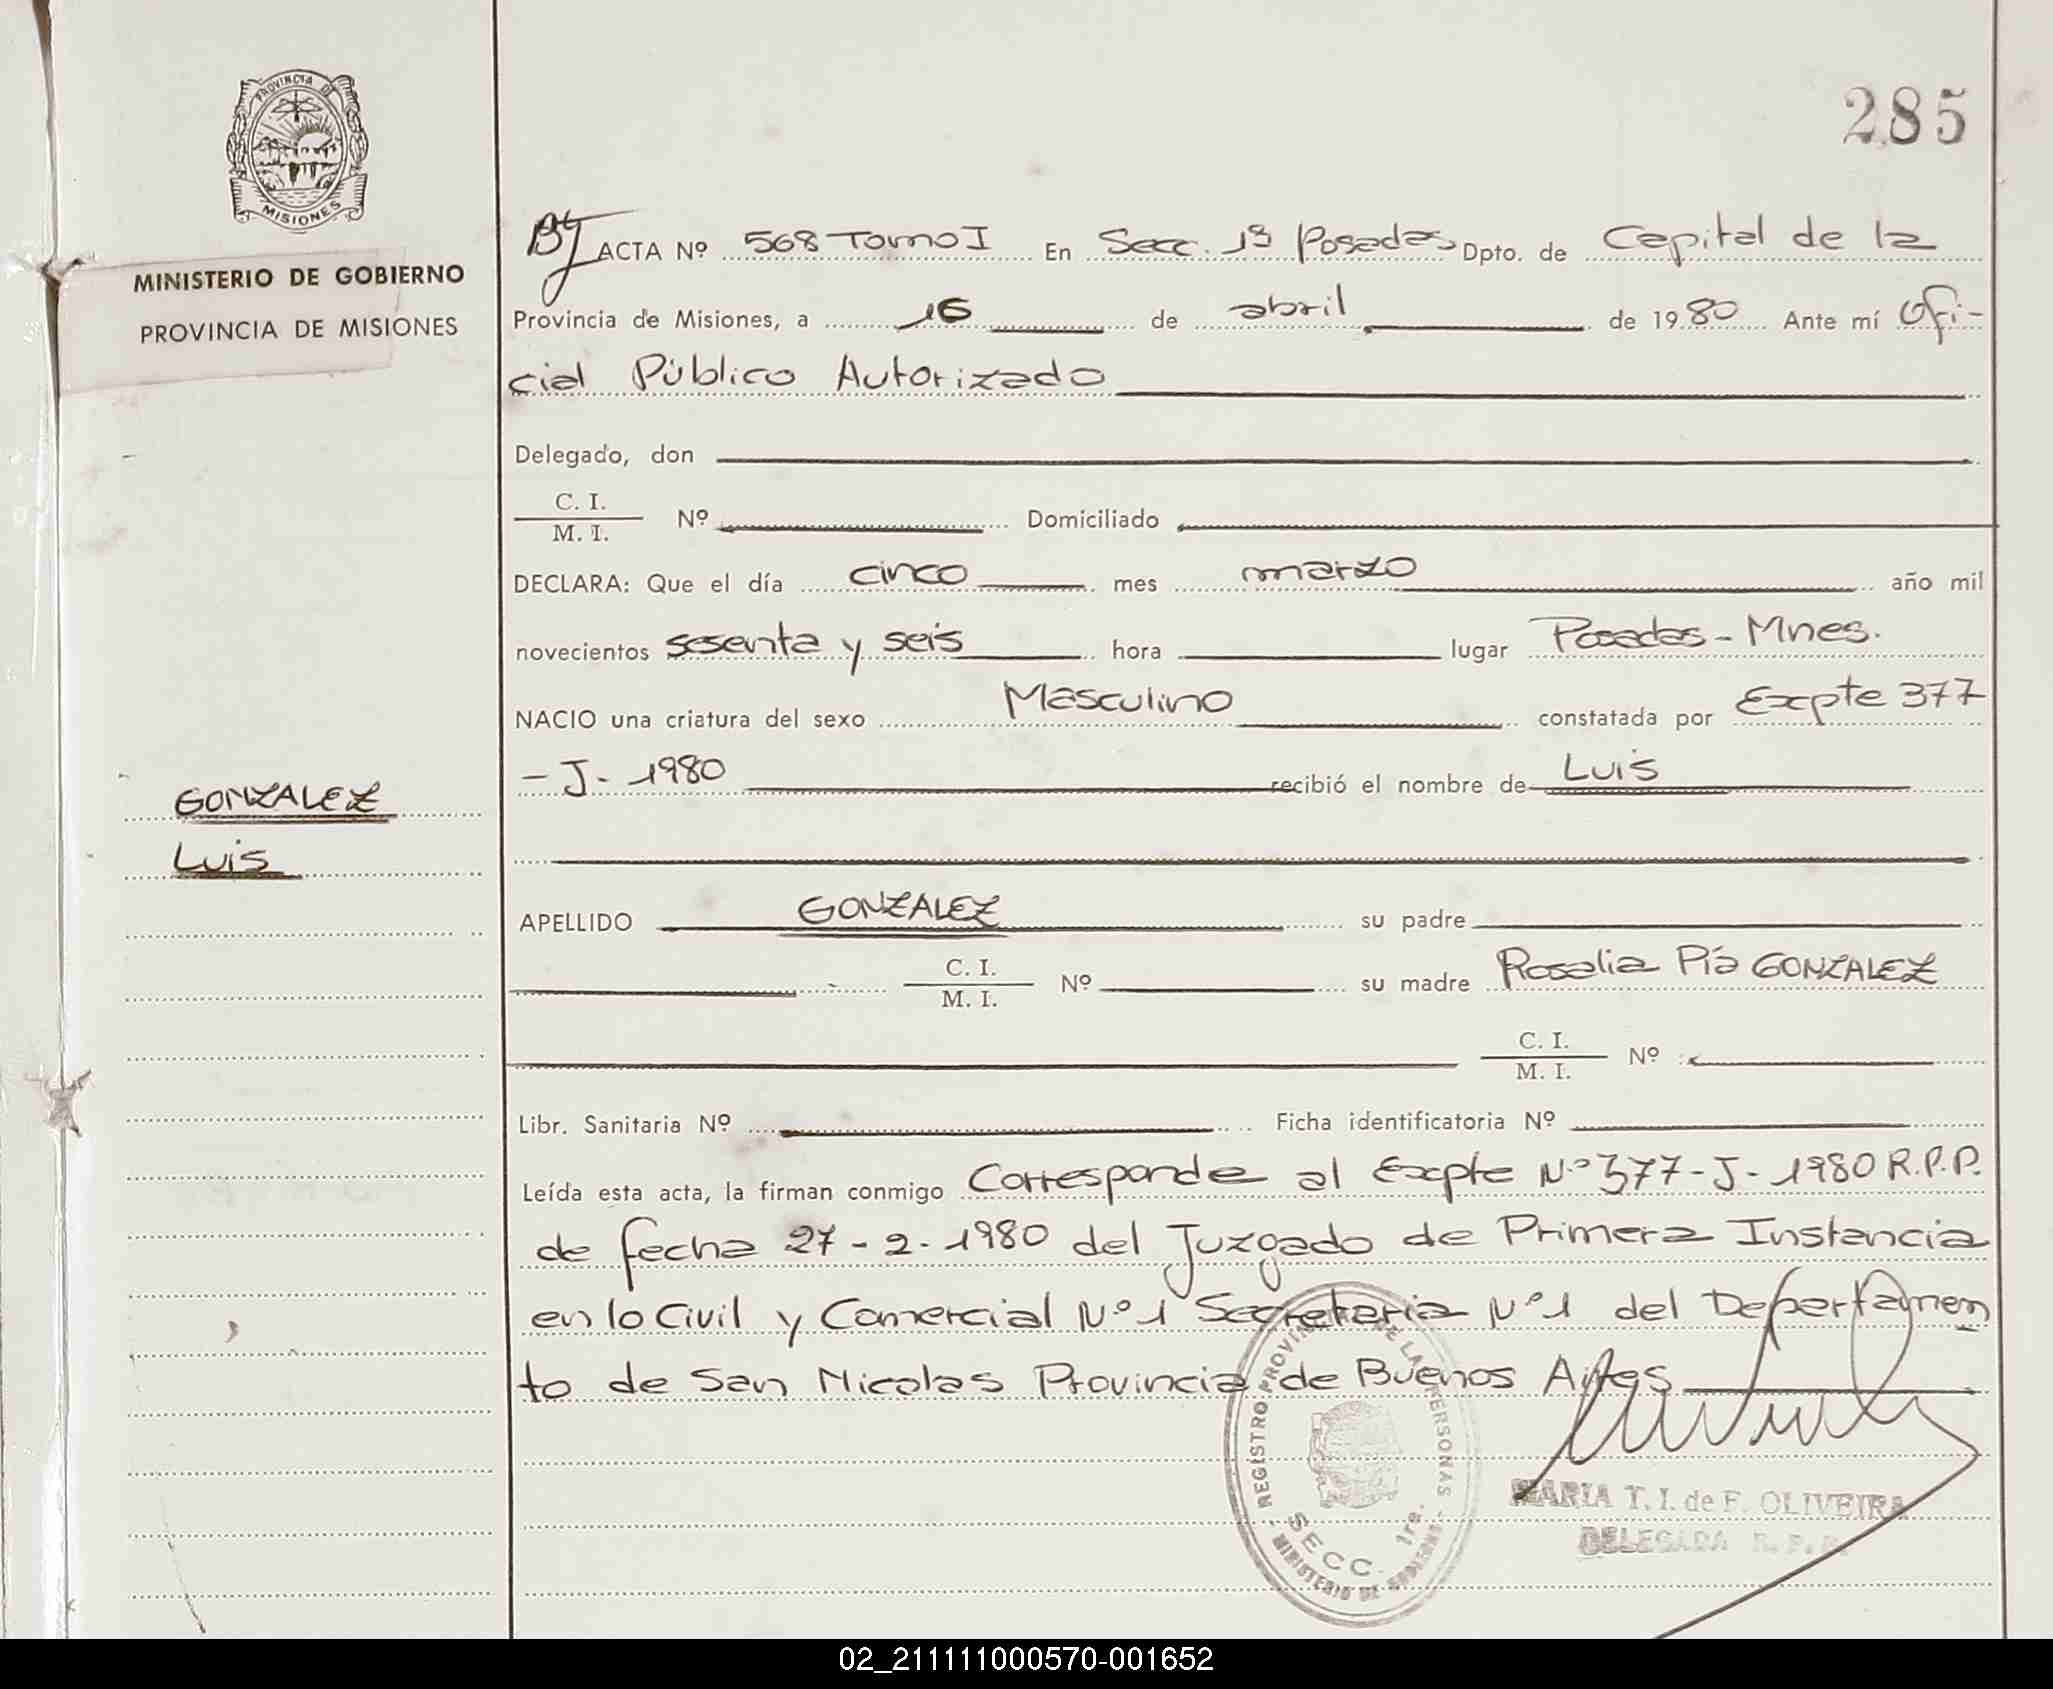 285
PROVINCIA DE
MISIONES
MINISTERIO DE GOBIERNO
PROVINCIA DE MISIONES
ACTA Nº 568 Tomo I En Secc. 1ª Posadas Dpto. de Capital de la
Provincia de Misiones, a 16 de abril de 1980 Ante mí Ofi-
cial Público Autorizado
Delegado, don
C. I.
M. I. Nº Domiciliado
DECLARA: Que el día cinco mes marzo año mil
novecientos sesenta y seis hora lugar Posadas - Mnes.
NACIO una criatura del sexo Masculino constatada por Expte 377
- J - 1980 recibió el nombre de Luis
GONZALEZ
Luis
APELLIDO GONZALEZ su padre
C. I.
M. I. Nº su madre Rosalia Pía GONZALEZ
C. I.
M. I. Nº
Libr. Sanitaria Nº Ficha identificatoria Nº
Leída esta acta, la firman conmigo Corresponde al Expte Nº 377-J-1980 R.P.P.
de fecha 27-2-1980 del Juzgado de Primera Instancia
en lo Civil y Comercial Nº 1 Secretaria Nº 1 del Departamen
to de San Nicolas Provincia de Buenos Aires
REGISTRO PROVINCIAL DE LAS PERSONAS
SECC. 1re.
MINISTERIO DE GOBIERNO
MARIA T. I. de F. OLIVEIRA
DELEGADA R. P. P.
02_211111000570-001652